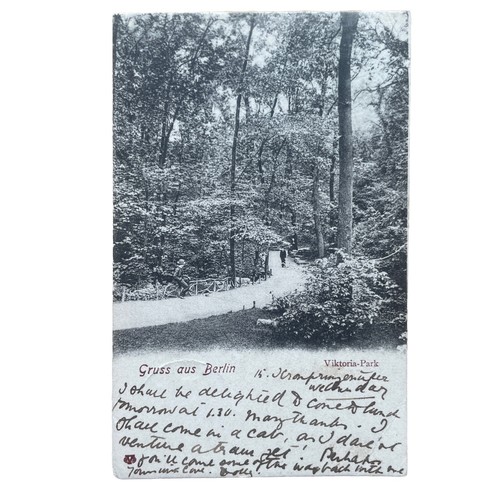 Gruss aus Berlin
Viktoria-Park
15. Kronprinzenufer
I shall be delighted to come to lunch
tomorrow at 1.30. Many thanks. I
shall come in a cab, as I dare'nt
venture a tram yet! Perhaps
you'll come some of the way back with me
Yours in a love.